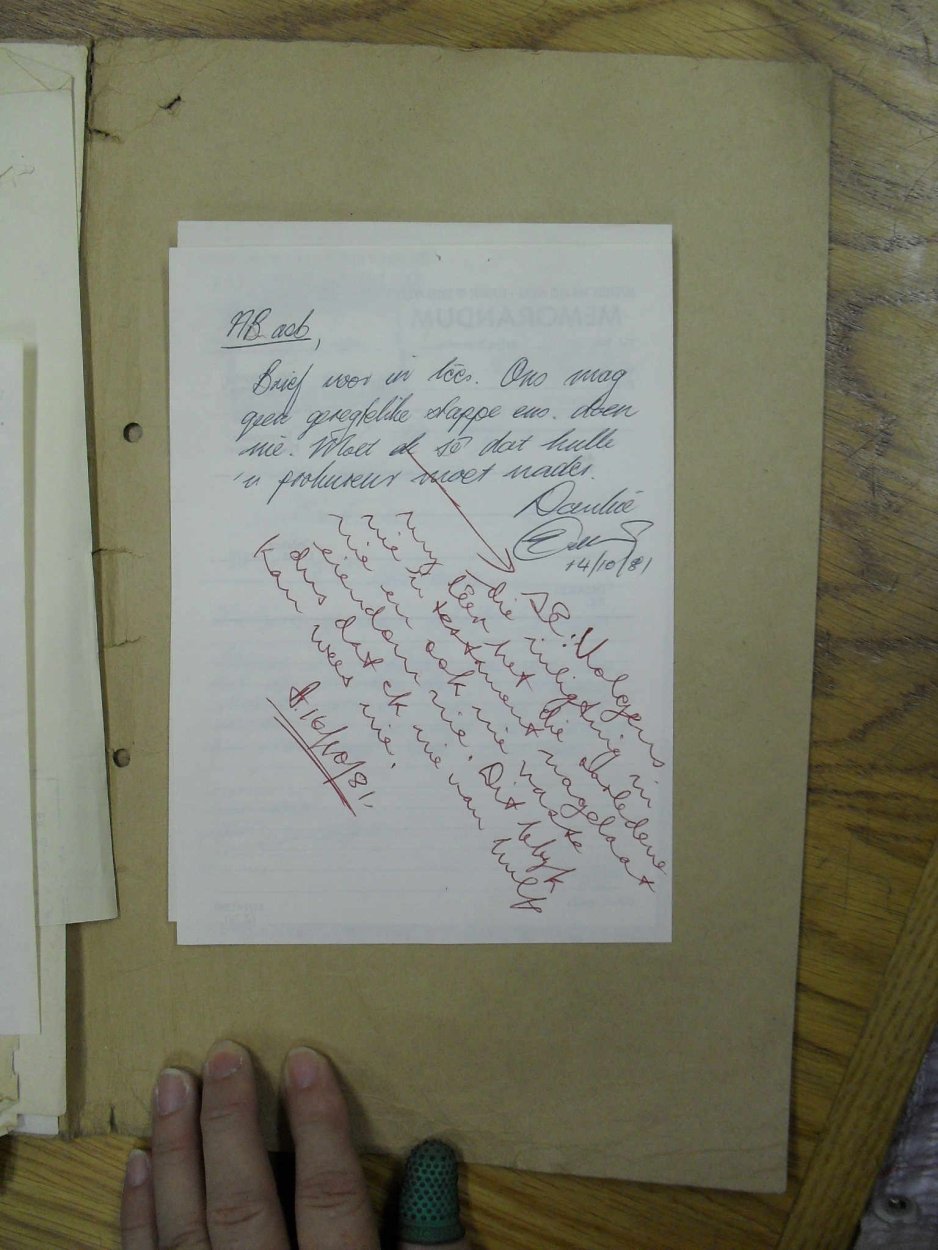 AB asb,
Brief voor in lêer. Ons mag
geen geregtelike stappe ens. doen
nie. Moet ek sê dat hulle
'n prokureur moet nader.
Dankie
14/10/81
Sê: Volgens
die inligting in
my lêer het die oorledene
nie 'n testament nagelaat
nie en ook nie vaste
eiendom nie. Dit blyk
dus dat ek nie van hulp
kan wees nie.
16/10/81.
MEMORANDUM